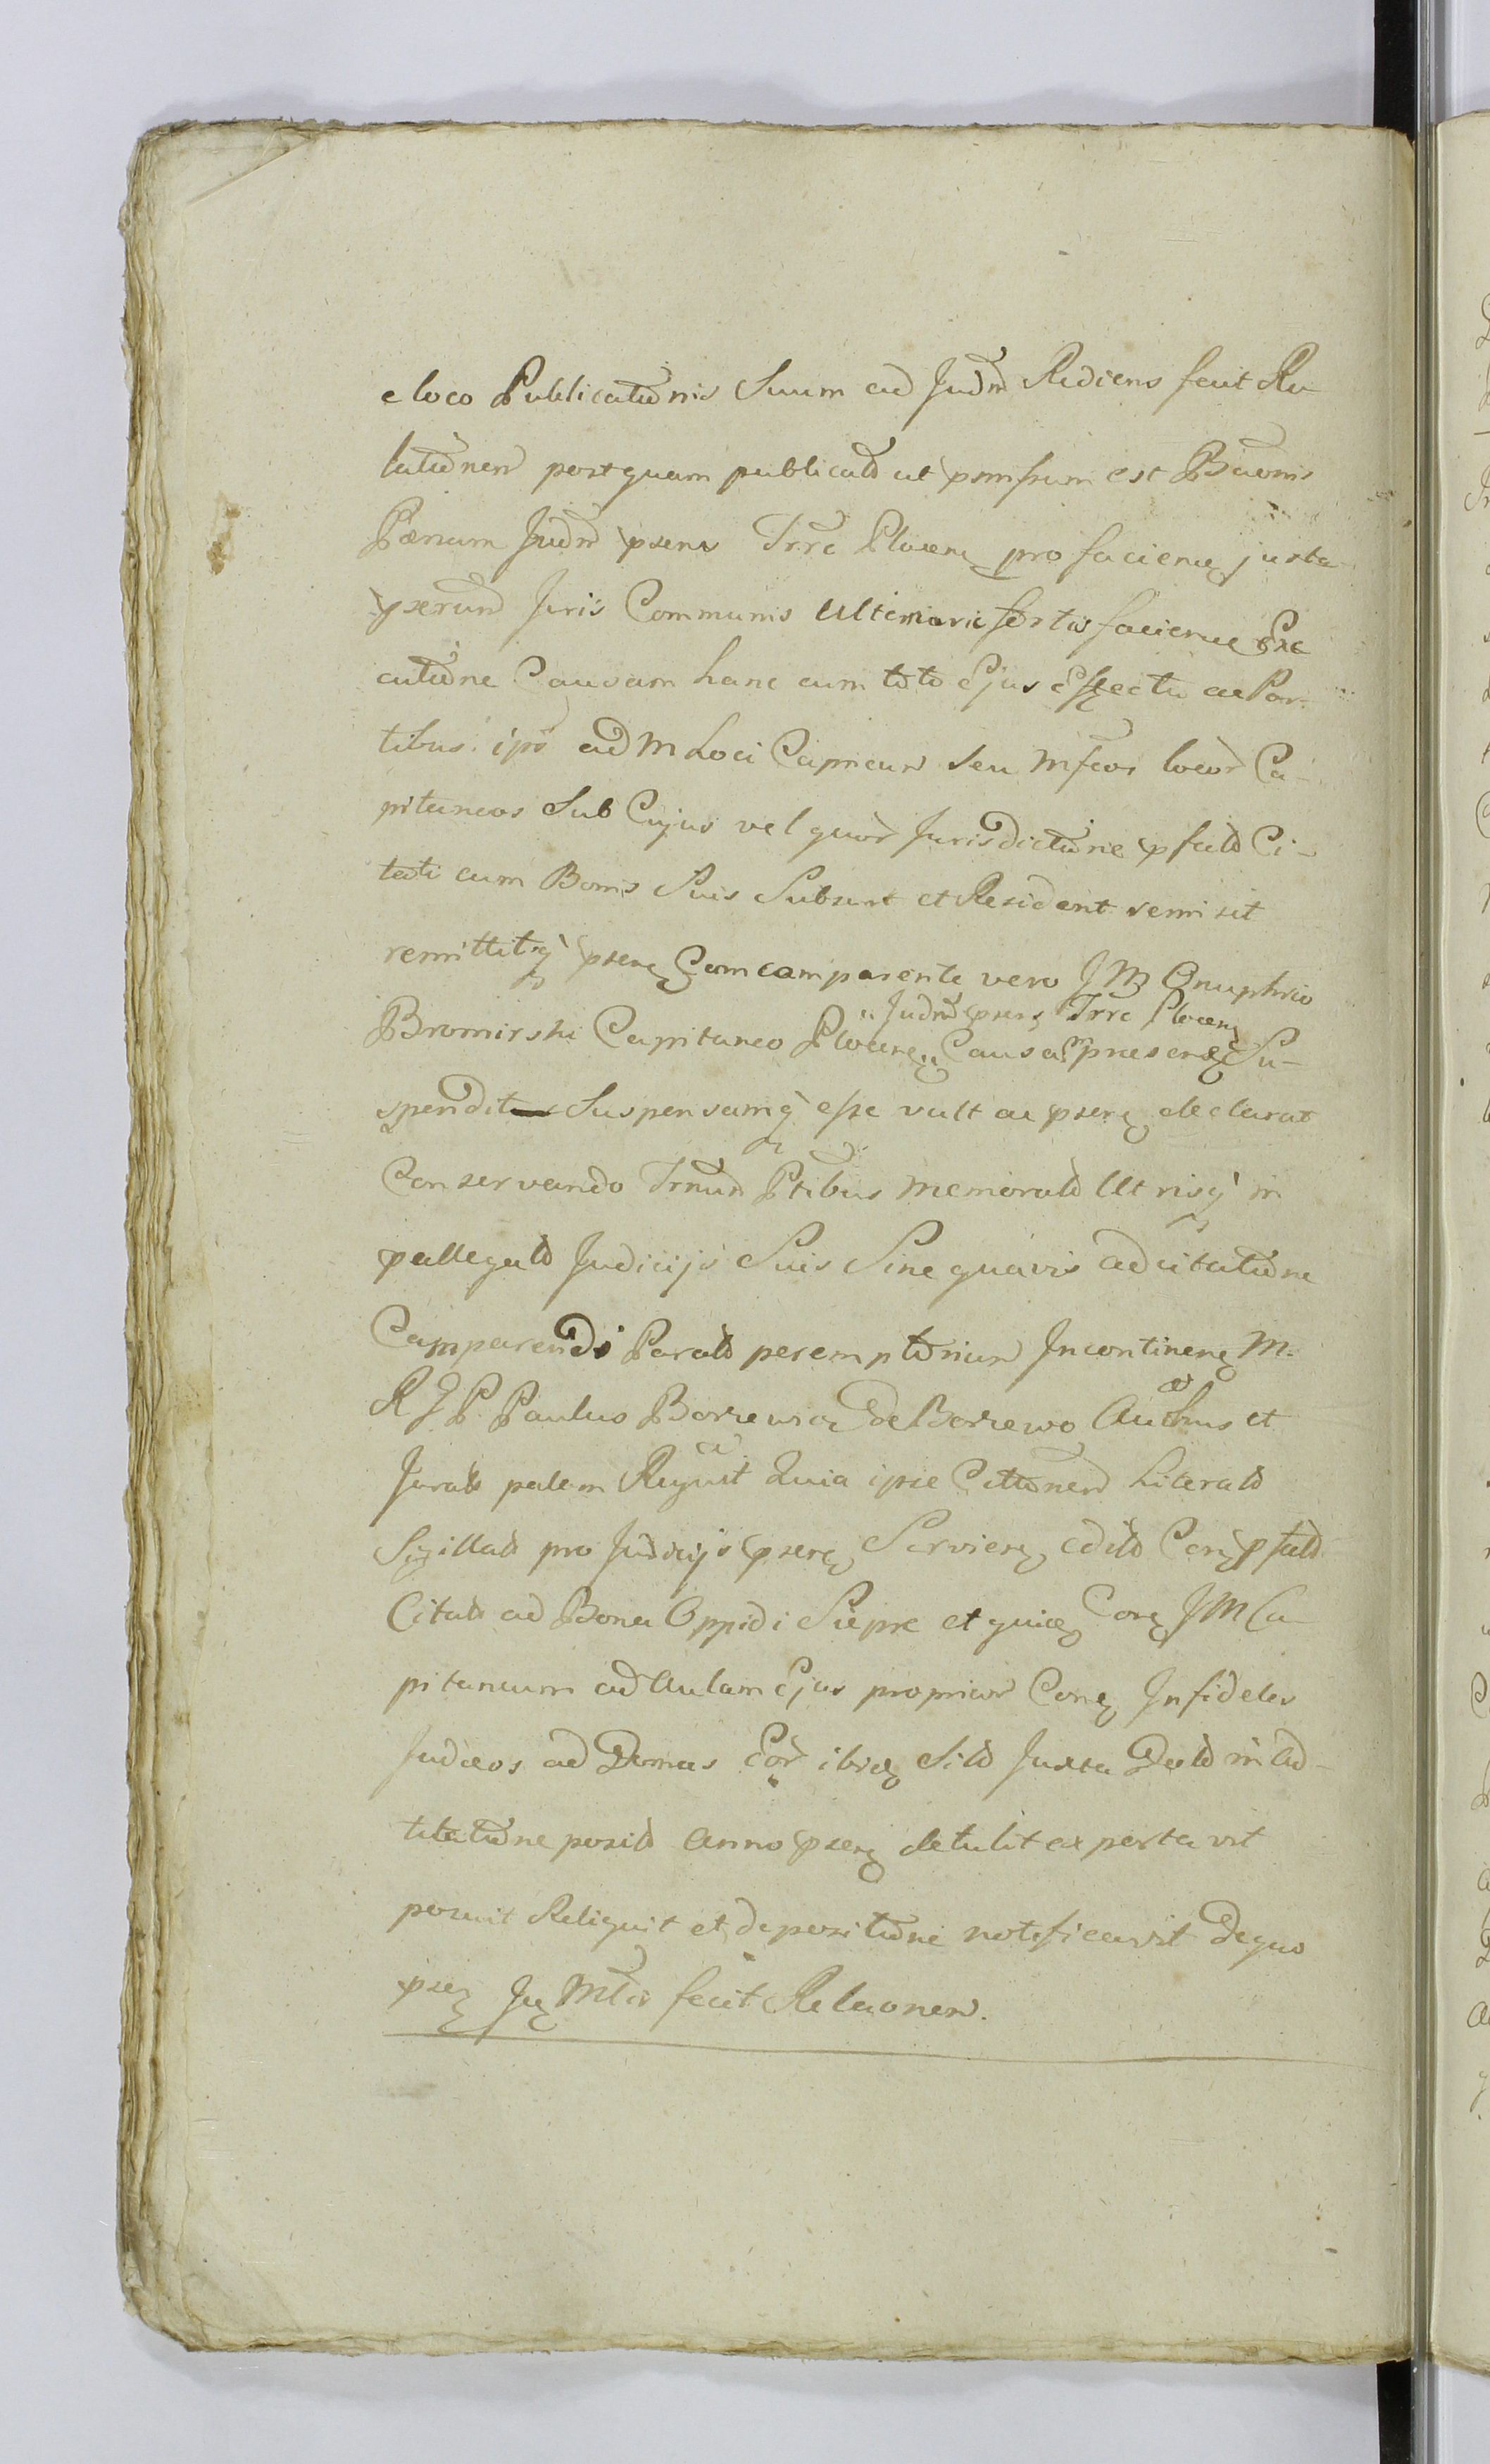 e loco Publicationis Suum ad Judm Rediens fecit Re-
lationem postquam publicatã ut pmissum est Bãonis
Pænam Judm psens Trre Plocens pro faciend juxta
pxerum Juris Communis Ulteriori fortis faciend Exe
cutione Causam hanc cum toto Ejus Effectu ac Par-
tibus ips ad M Loci Capneum seu Mfcos locor Ca-
pitaneos Sub Cujus vel quor Jurisdictione pfati Ci-
tati cum Bonis Suis Subsunt et Resident remisit
remittitq psens Comcomparente vero J M Onuphrio
"Judm psens Trre Plocens
Bromirski Capitaneo Plocens" Causam praesens Su-
spendit Suspensamq esse vult ac psens declarat
Conservando Trnum Ptibus memorat Utrisq in
pallegat Judicijs Suis Sine quavis adcitatione
Comparendi Parat peremptorium Incontinens M.
R J P. Paulus Borzewicz de Borzewo Authus et
Jurat palam Recgnvt Quia ipse Cittonem Literat
Sigillat pro Judicijs psens Serviens edit Cont pfat
Citat ad Bona Oppidi Sieprc et quidem Cont J M Ca-
pitaneum ad Aulam Ejus propriam Cont Infideles
Judæos ad Domus Eor ibidem Sit Juxta Dat in Ad-
citatione posit Anno psens detulit exportavit
posuit Reliquit et depositione notificavit Dequo
psens Jud Mltis fecit Relaonem.